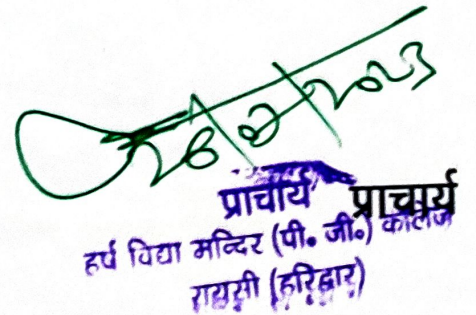 प्राचार्य प्राचार्य
हर्ष विद्या मन्दिर (पी. जी.) कॉलेज
रायसी (हरिद्वार)